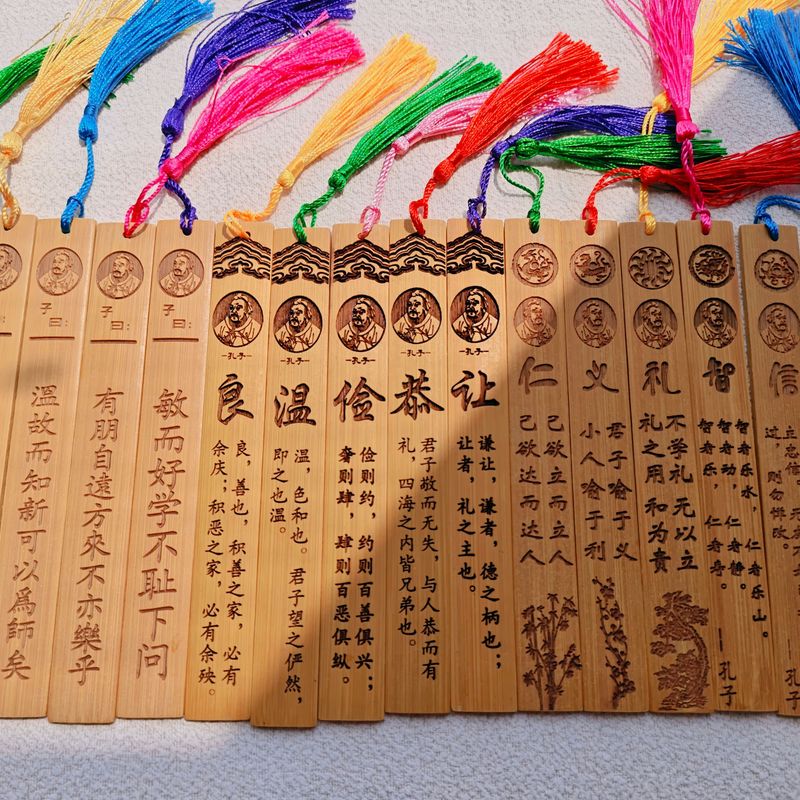 子曰：
溫故而知新可以爲師矣
子曰：
有朋自遠方來不亦樂乎
子曰：
敏而好学不耻下问
良
良，善也，积善之家，必有
余庆；积恶之家，必有余殃。
孔子
温
温，色和也。君子望之俨然，
即之也温。
孔子
俭
俭则约，约则百善俱兴；
奢则肆，肆则百恶俱纵。
孔子
恭
君子敬而无失，与人恭而有
礼，四海之内皆兄弟也。
孔子
让
谦让，谦者，德之柄也；
让者，礼之主也。
仁
己欲立而立人
己欲达而达人
义
君子喻于义
小人喻于利
礼
不学礼 无以立
礼之用 和为贵
智
智者乐水，仁者乐山。
智者动，仁者静。
智者乐，仁者寿。
—孔子
信
主忠信，无友不
过，则勿惮改。
—孔子